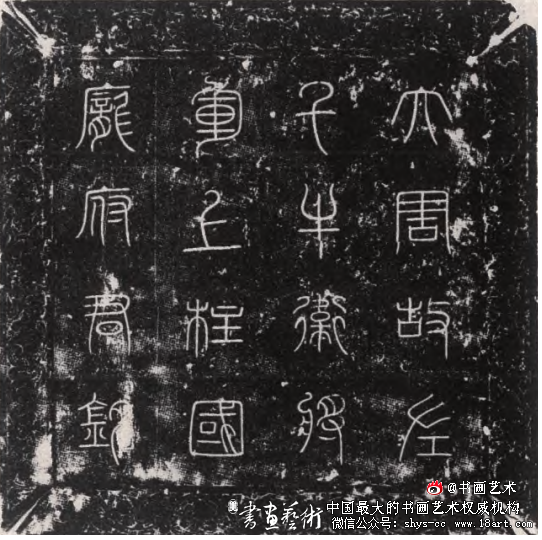 大周故左
千牛衛將
軍上柱國
龐府君銘
@书画艺术
書画藝術
中国最大的书画艺术权威机构
微信公众号：shys-cc www.18art.com